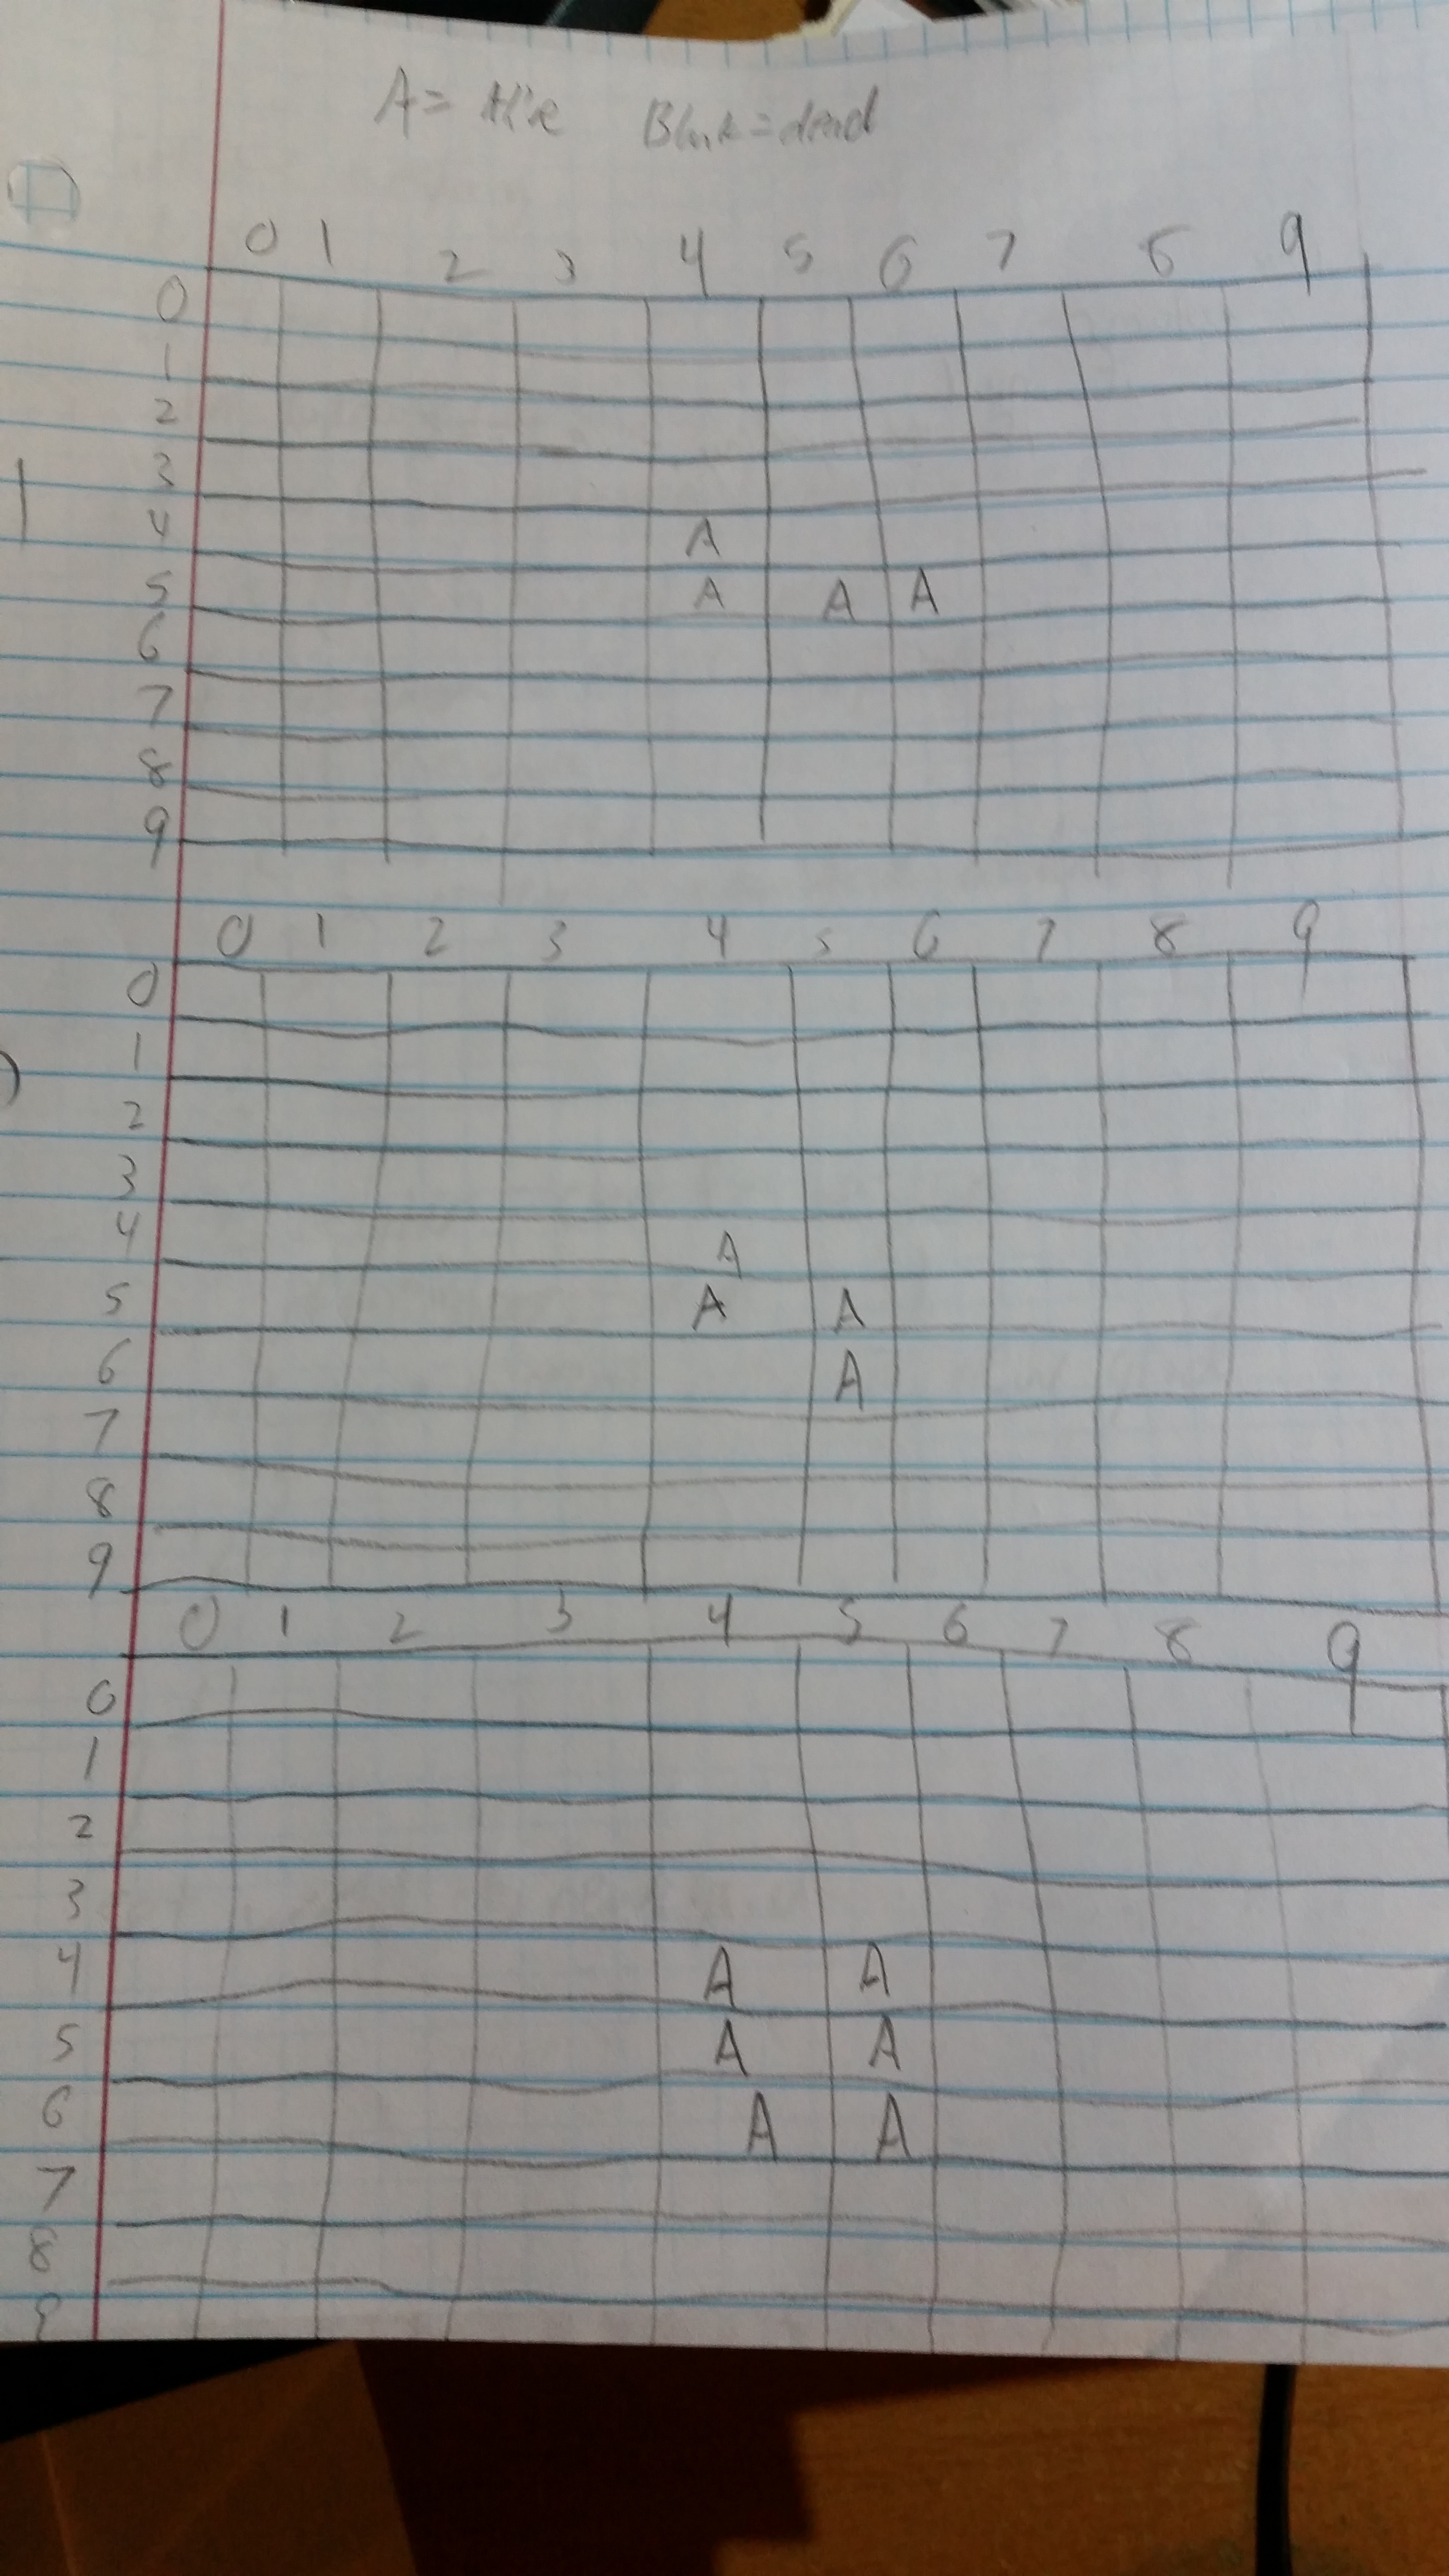 A = Alive Blank = dead
0 1 2 3 4 5 6 7 8 9
0
1
2
3
4 A
5 A A A
6
7
8
9
0 1 2 3 4 5 6 7 8 9
0
1
2
3
4 A
5 A A
6 A
7
8
9
0 1 2 3 4 5 6 7 8 9
0
1
2
3
4 A A
5 A A
6 A A
7
8
9